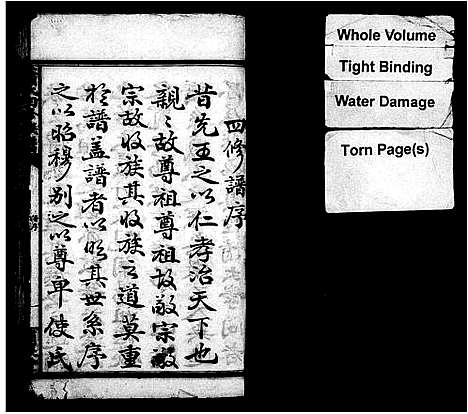 四修譜序
昔先王之以仁孝治天下也
親〻故尊祖尊祖故敬宗敬
宗故收族其收族之道莫重
於譜蓋譜者以明其世系序
之以昭穆别之以尊卑使氏
Whole Volume
Tight Binding
Water Damage
Torn Page(s)